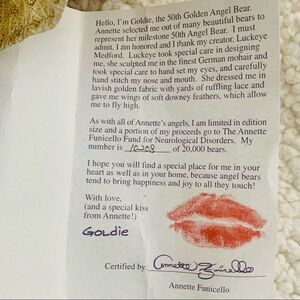 Hello, I'm Goldie, the 50th Golden Angel Bear.
Annette selected me out of many beautiful bears to
represent her milestone 50th Angel Bear. I must
admit, I am honored and I thank my creator, Luckeye
Medford. Luckeye took special care in designing
me, she sculpted me in the finest German mohair and
took special care to hand set my eyes, and carefully
hand stitch my nose and mouth. She dressed me in
lavish golden fabric with yards of ruffling lace and
gave me wings of soft downey feathers, which allow
me to fly high.
As with all of Annette's angels, I am limited in edition
size and a portion of my proceeds go to The Annette
Funicello Fund for Neurological Disorders. My
number is 10208 of 20,000 bears.
I hope you will find a special place for me in your
heart as well as in your home, because angel bears
tend to bring happiness and joy to all they touch!
With love,
(and a special kiss
from Annette!)
Goldie
Certified by: Annette Funicello
Annette Funicello